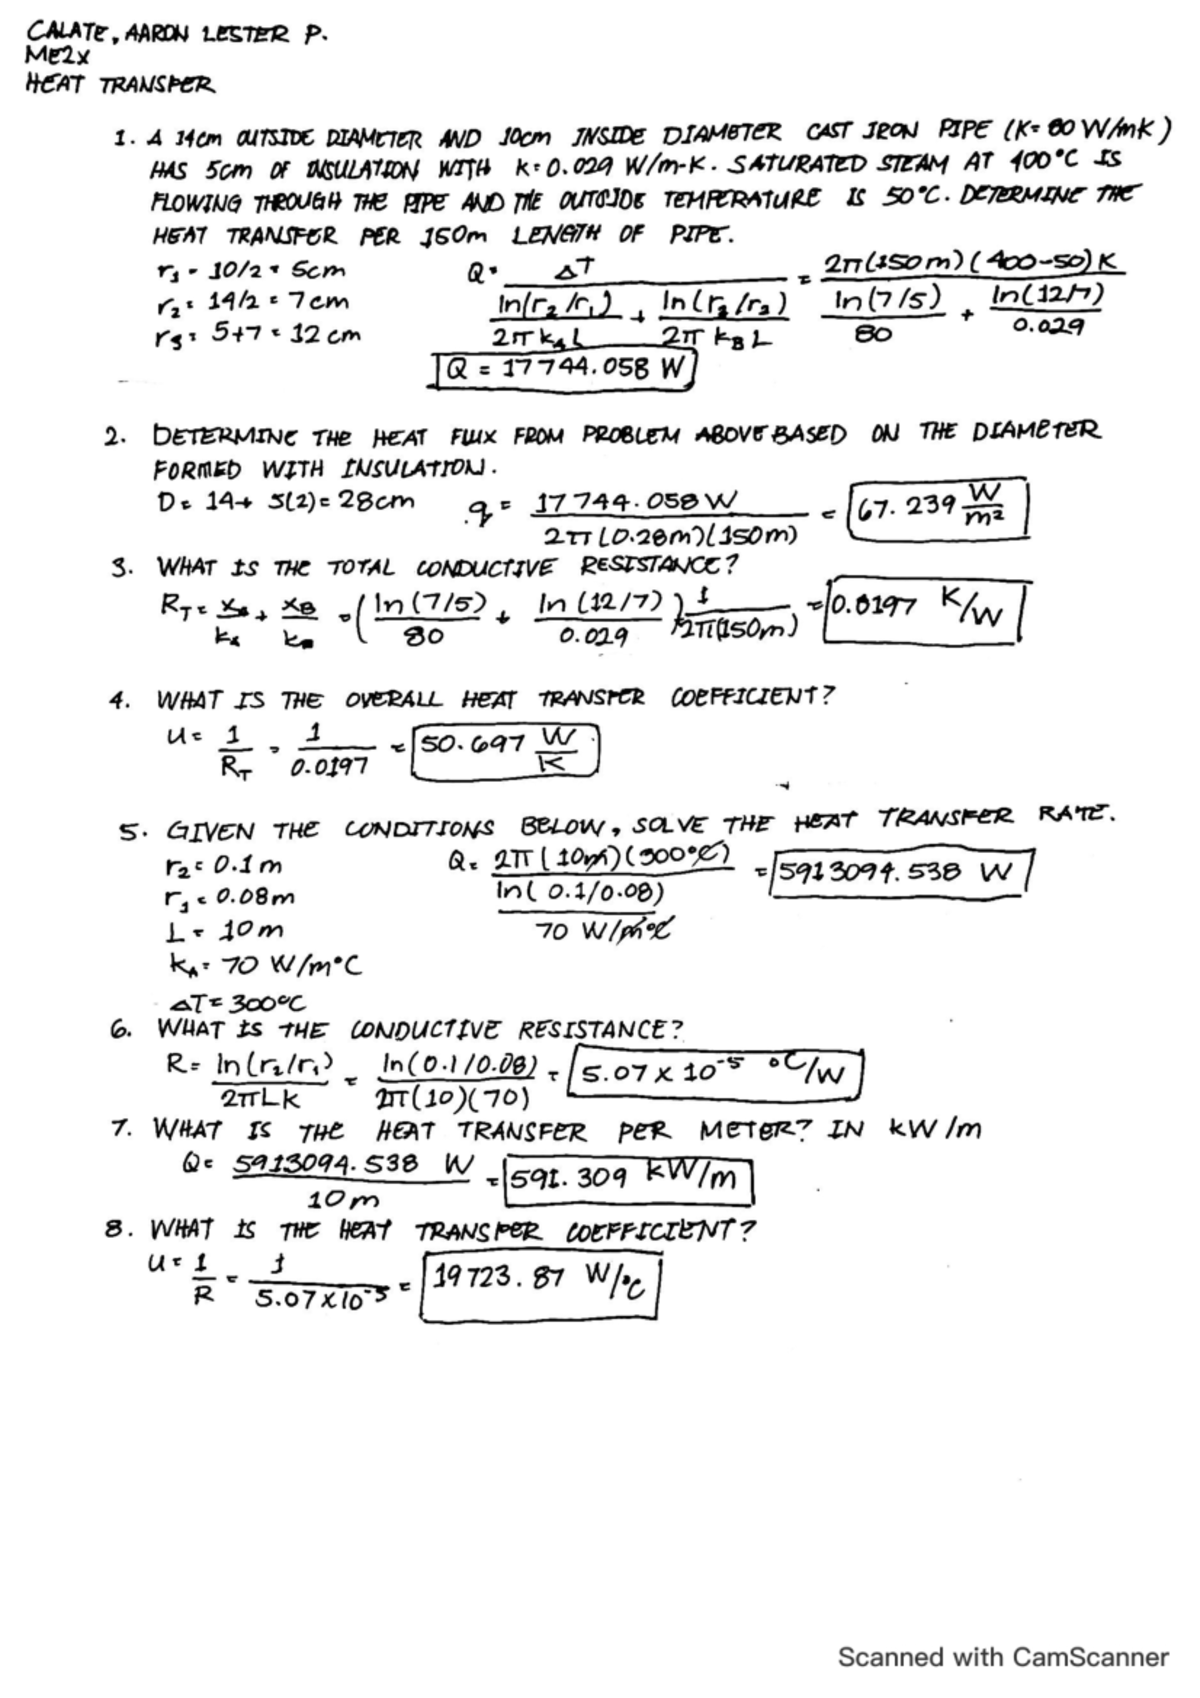 CALATE, AARON LESTER P.
ME2X
HEAT TRANSFER
1. A 14cm OUTSIDE DIAMETER AND 10cm INSIDE DIAMETER CAST IRON PIPE (K= 80 W/mK)
HAS 5cm OF INSULATION WITH K=0.029 W/m-K. SATURATED STEAM AT 400°C IS
FLOWING THROUGH THE PIPE AND THE OUTSIDE TEMPERATURE IS 50°C. DETERMINE THE
HEAT TRANSFER PER 150m LENGTH OF PIPE.
r1 = 10/2 = 5cm
r2 = 14/2 = 7cm
r3 = 5+7 = 12 cm
Q = ΔT / (ln(r2/r1) / 2π kA L + ln(r3/r2) / 2π kB L) = 2π(150m)(400-50)K / (ln(7/5) / 80 + ln(12/7) / 0.029)
Q = 17744.058 W
2. DETERMINE THE HEAT FLUX FROM PROBLEM ABOVE BASED ON THE DIAMETER
FORMED WITH INSULATION.
D = 14+ 5(2) = 28cm q = 17744.058 W / 2π(0.28m)(150m) = 67.239 W/m²
3. WHAT IS THE TOTAL CONDUCTIVE RESISTANCE?
RT = xA/kA + xB/kB = (ln(7/5) / 80 + ln(12/7) / 0.029) 1 / 2π(150m) = 0.0197 K/W
4. WHAT IS THE OVERALL HEAT TRANSFER COEFFICIENT?
U = 1/RT = 1/0.0197 = 50.697 W/K
5. GIVEN THE CONDITIONS BELOW, SOLVE THE HEAT TRANSFER RATE.
r2 = 0.1 m
r1 = 0.08m
L = 10m
kA = 70 W/m°C
ΔT = 300°C
Q = 2π(10m)(300°C) / (ln(0.1/0.08) / 70 W/m°C) = 5913094.538 W
6. WHAT IS THE CONDUCTIVE RESISTANCE?
R = ln(r2/r1) / 2πLk = ln(0.1/0.08) / 2π(10)(70) = 5.07 x 10⁻⁵ °C/W
7. WHAT IS THE HEAT TRANSFER PER METER? IN kW/m
Q = 5913094.538 W / 10m = 591.309 kW/m
8. WHAT IS THE HEAT TRANSFER COEFFICIENT?
U = 1/R = 1 / 5.07x10⁻⁵ = 19723.87 W/°C
Scanned with CamScanner